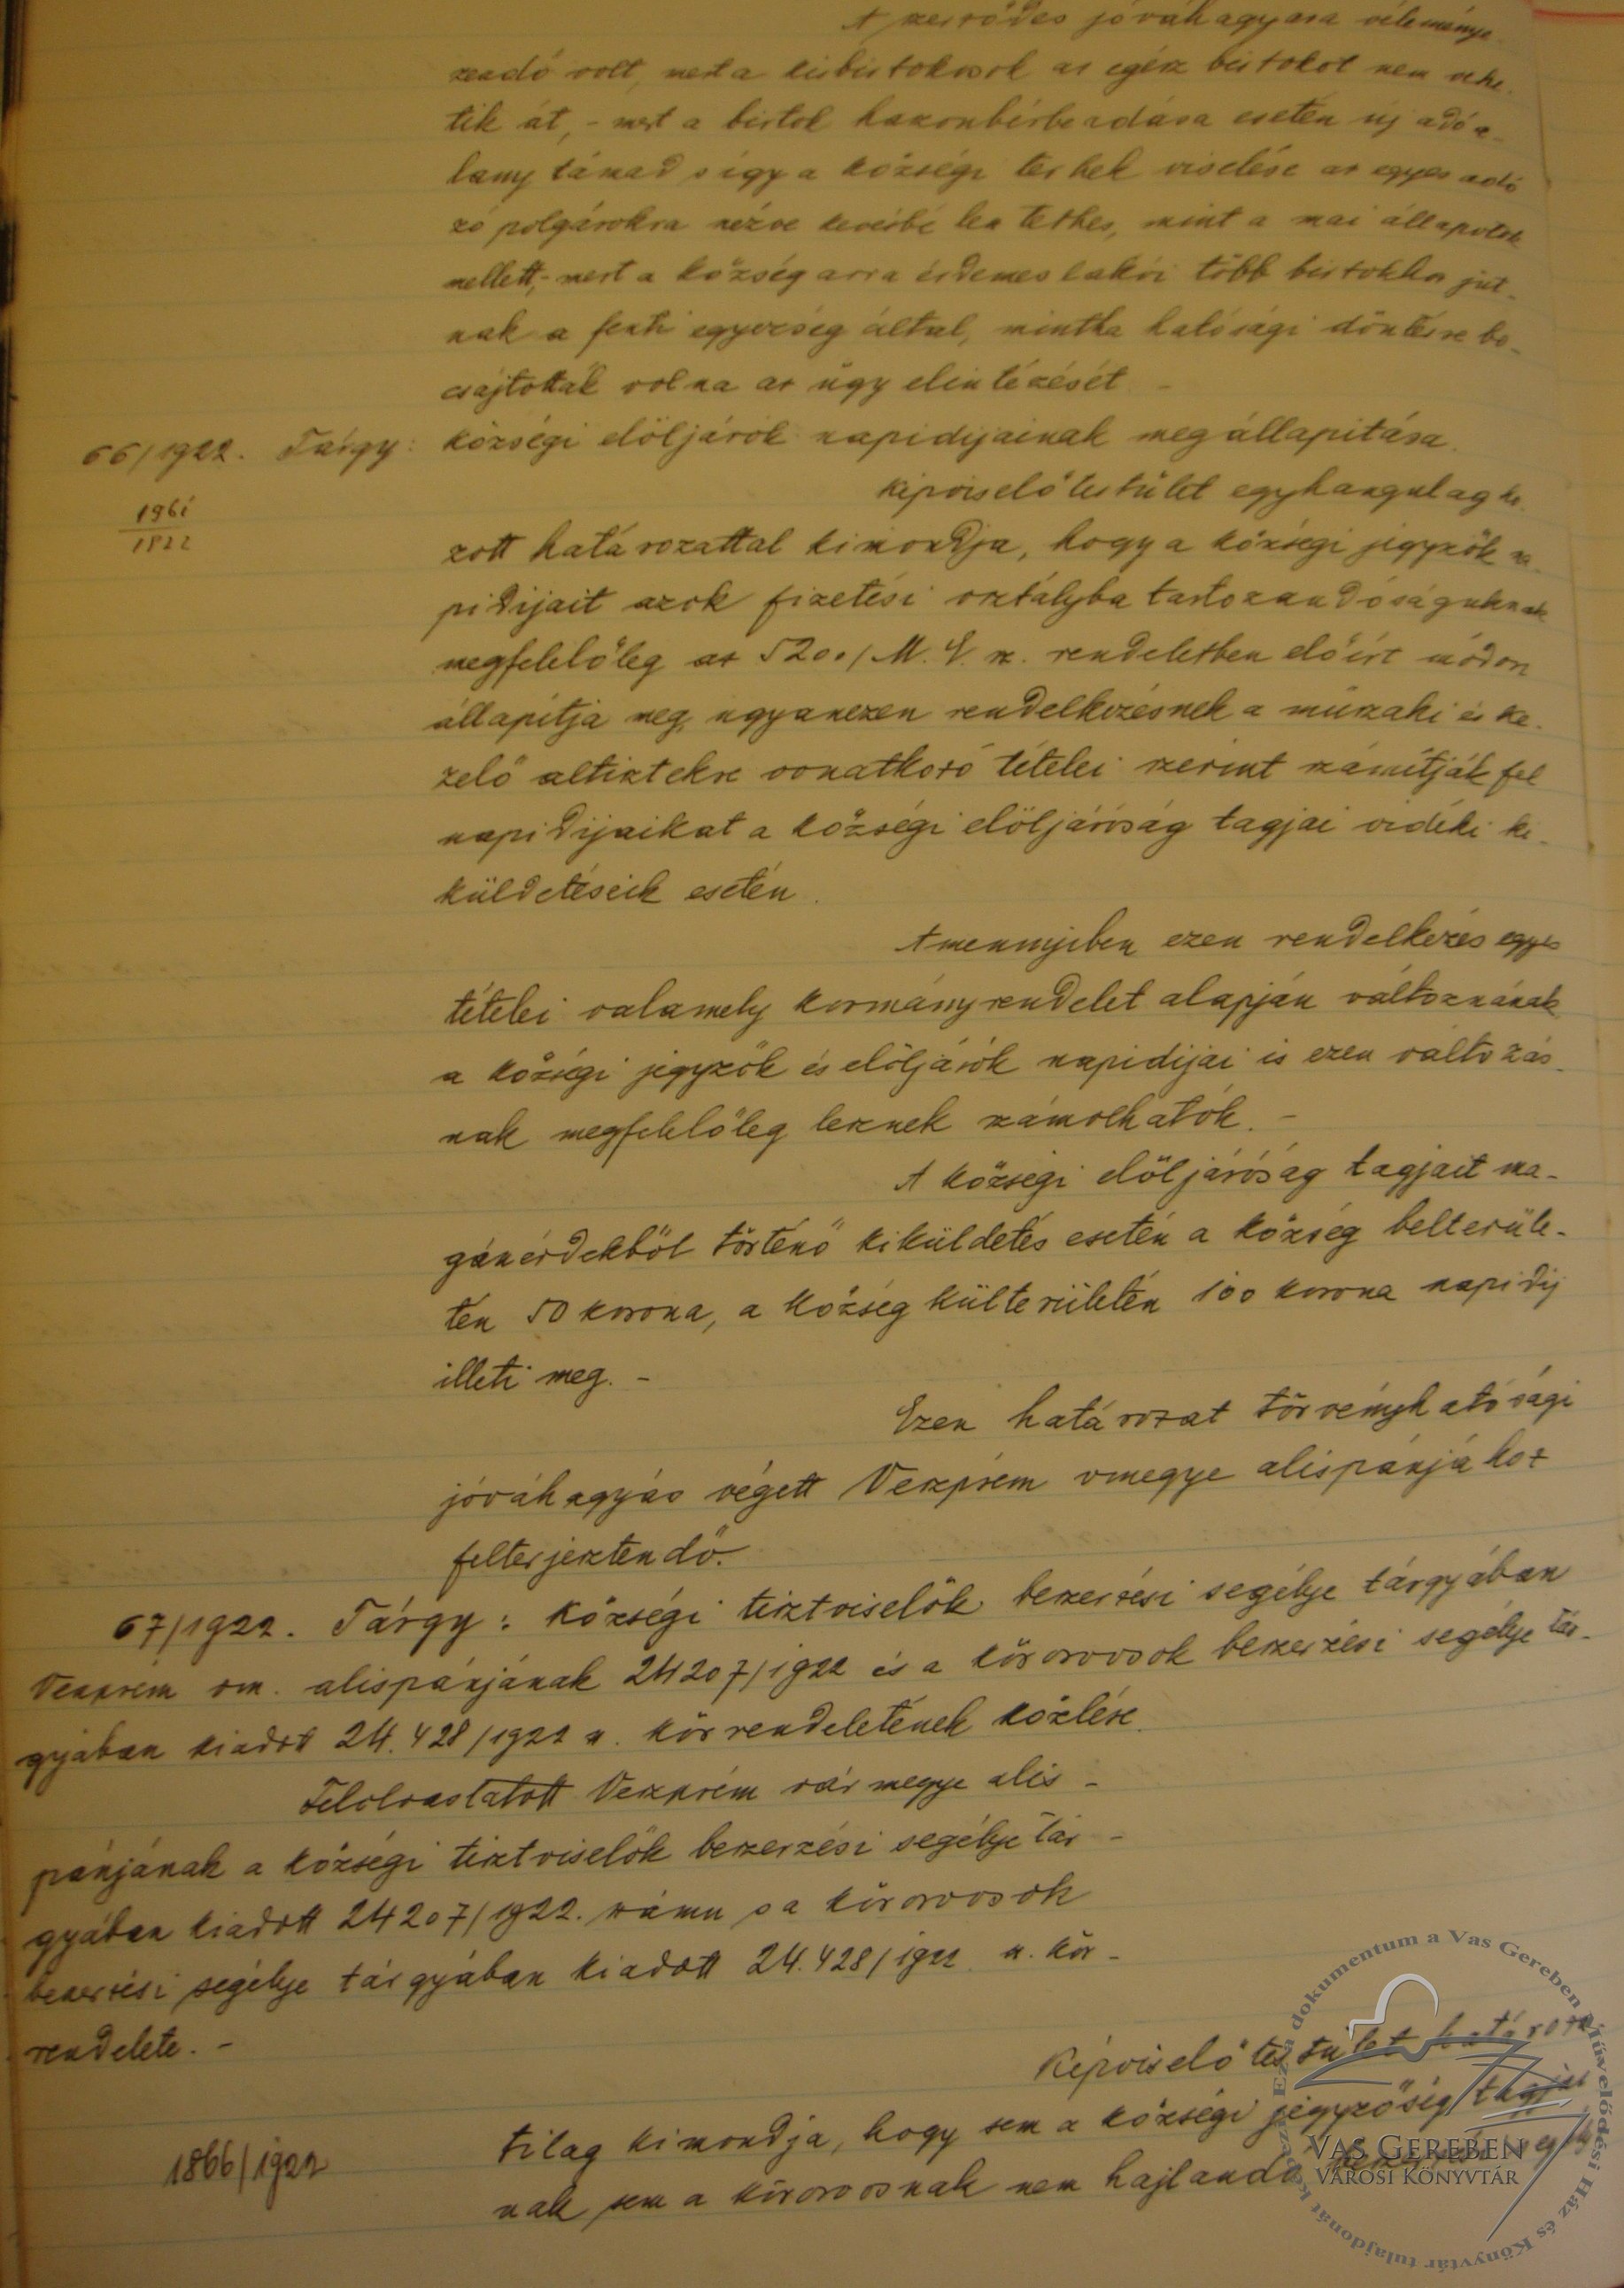 A szerződés jóváhagyása véleménye
zendő volt, mert a kisbirtokosok az egész birtokot nem vehe-
tik át, - mert a birtok haszonbérbeadása esetén új adóa-
lany támad s így a községi terhek viselése az egyes adó
zó polgárokra nézve kevésbé lesz terhes, mint a mai állapotok
mellett,- mert a község arra érdemes lakói több birtokhoz jut-
nak a fenti egyezség által, mintha hatósági döntésre bo-
csájtották volna az ügy elintézését -
66/1922. Tárgy: községi elöljárók napidijainak megállapitása.
Képviselőtestület egyhangulag ho-
zott határozattal kimondja, hogy a községi jegyzők na-
pidijait azok fizetési osztályba tartozandóságuknak
megfelelőleg az 5200/M.E. sz. rendeletben előírt módon
állapítja meg, ugyanezen rendelkezésnek a műszaki és ke-
zelő altisztekre vonatkozó tételei szerint számítják fel
napidijaikat a községi elöljáróság tagjai vidéki ki-
küldetéseik esetén.
1822
Amennyiben ezen rendelkezés egyes
tételei valamely kormányrendelet alapján változnának
a községi jegyzők és elöljárók napidijai is ezen változás-
nak megfelelőleg lesznek számolhatók. -
A községi elöljáróság tagjait ma-
gánérdekből történő kiküldetés esetén a község belterüle-
tén 50 korona, a község külterületén 100 korona napidij
illeti meg. -
Ezen határozat törvényhatósági
jóváhagyás végett Veszprém vmegye alispánjához
felterjesztendő.
67/1922. Tárgy: Községi tisztviselők beszerzési segélye tárgyában
Veszprém vm. alispánjának 24207/1922 és a körorvosok beszerzési segélye tár-
gyában kiadott 24.428/1922 sz. körrendeletének közlése.
Felolvastatott Veszprém vármegye alis-
pánjának a községi tisztviselők beszerzési segélye tár-
gyában kiadott 24207/1922. számu s a körorvosok
beszerzési segélye tárgyában kiadott 24.428/1922. sz. kör-
rendelete. -
Képviselőtestület határoza-
tilag kimondja, hogy sem a községi jegyzőség tagjai-
nak sem a körorvosnak nem hajlandó
1866/1922
Ez a dokumentum a Vas Gereben Művelődési Ház és Könyvtár tulajdonát képezi
VAS GEREBEN
VÁROSI KÖNYVTÁR